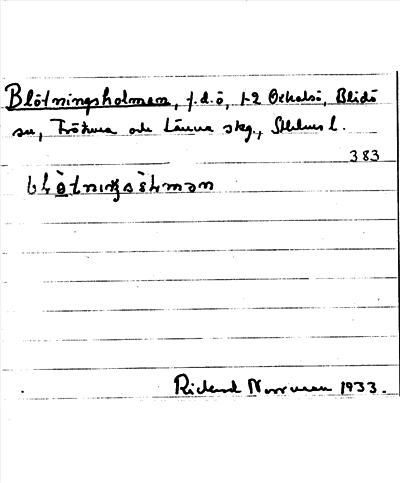 Blötningsholmen, f.d.ö, 1-2 Oxhalsö, Blidö
sn, Frötuna och Länna skg., Sthlms l.
383
Rickard Norrman 1933.